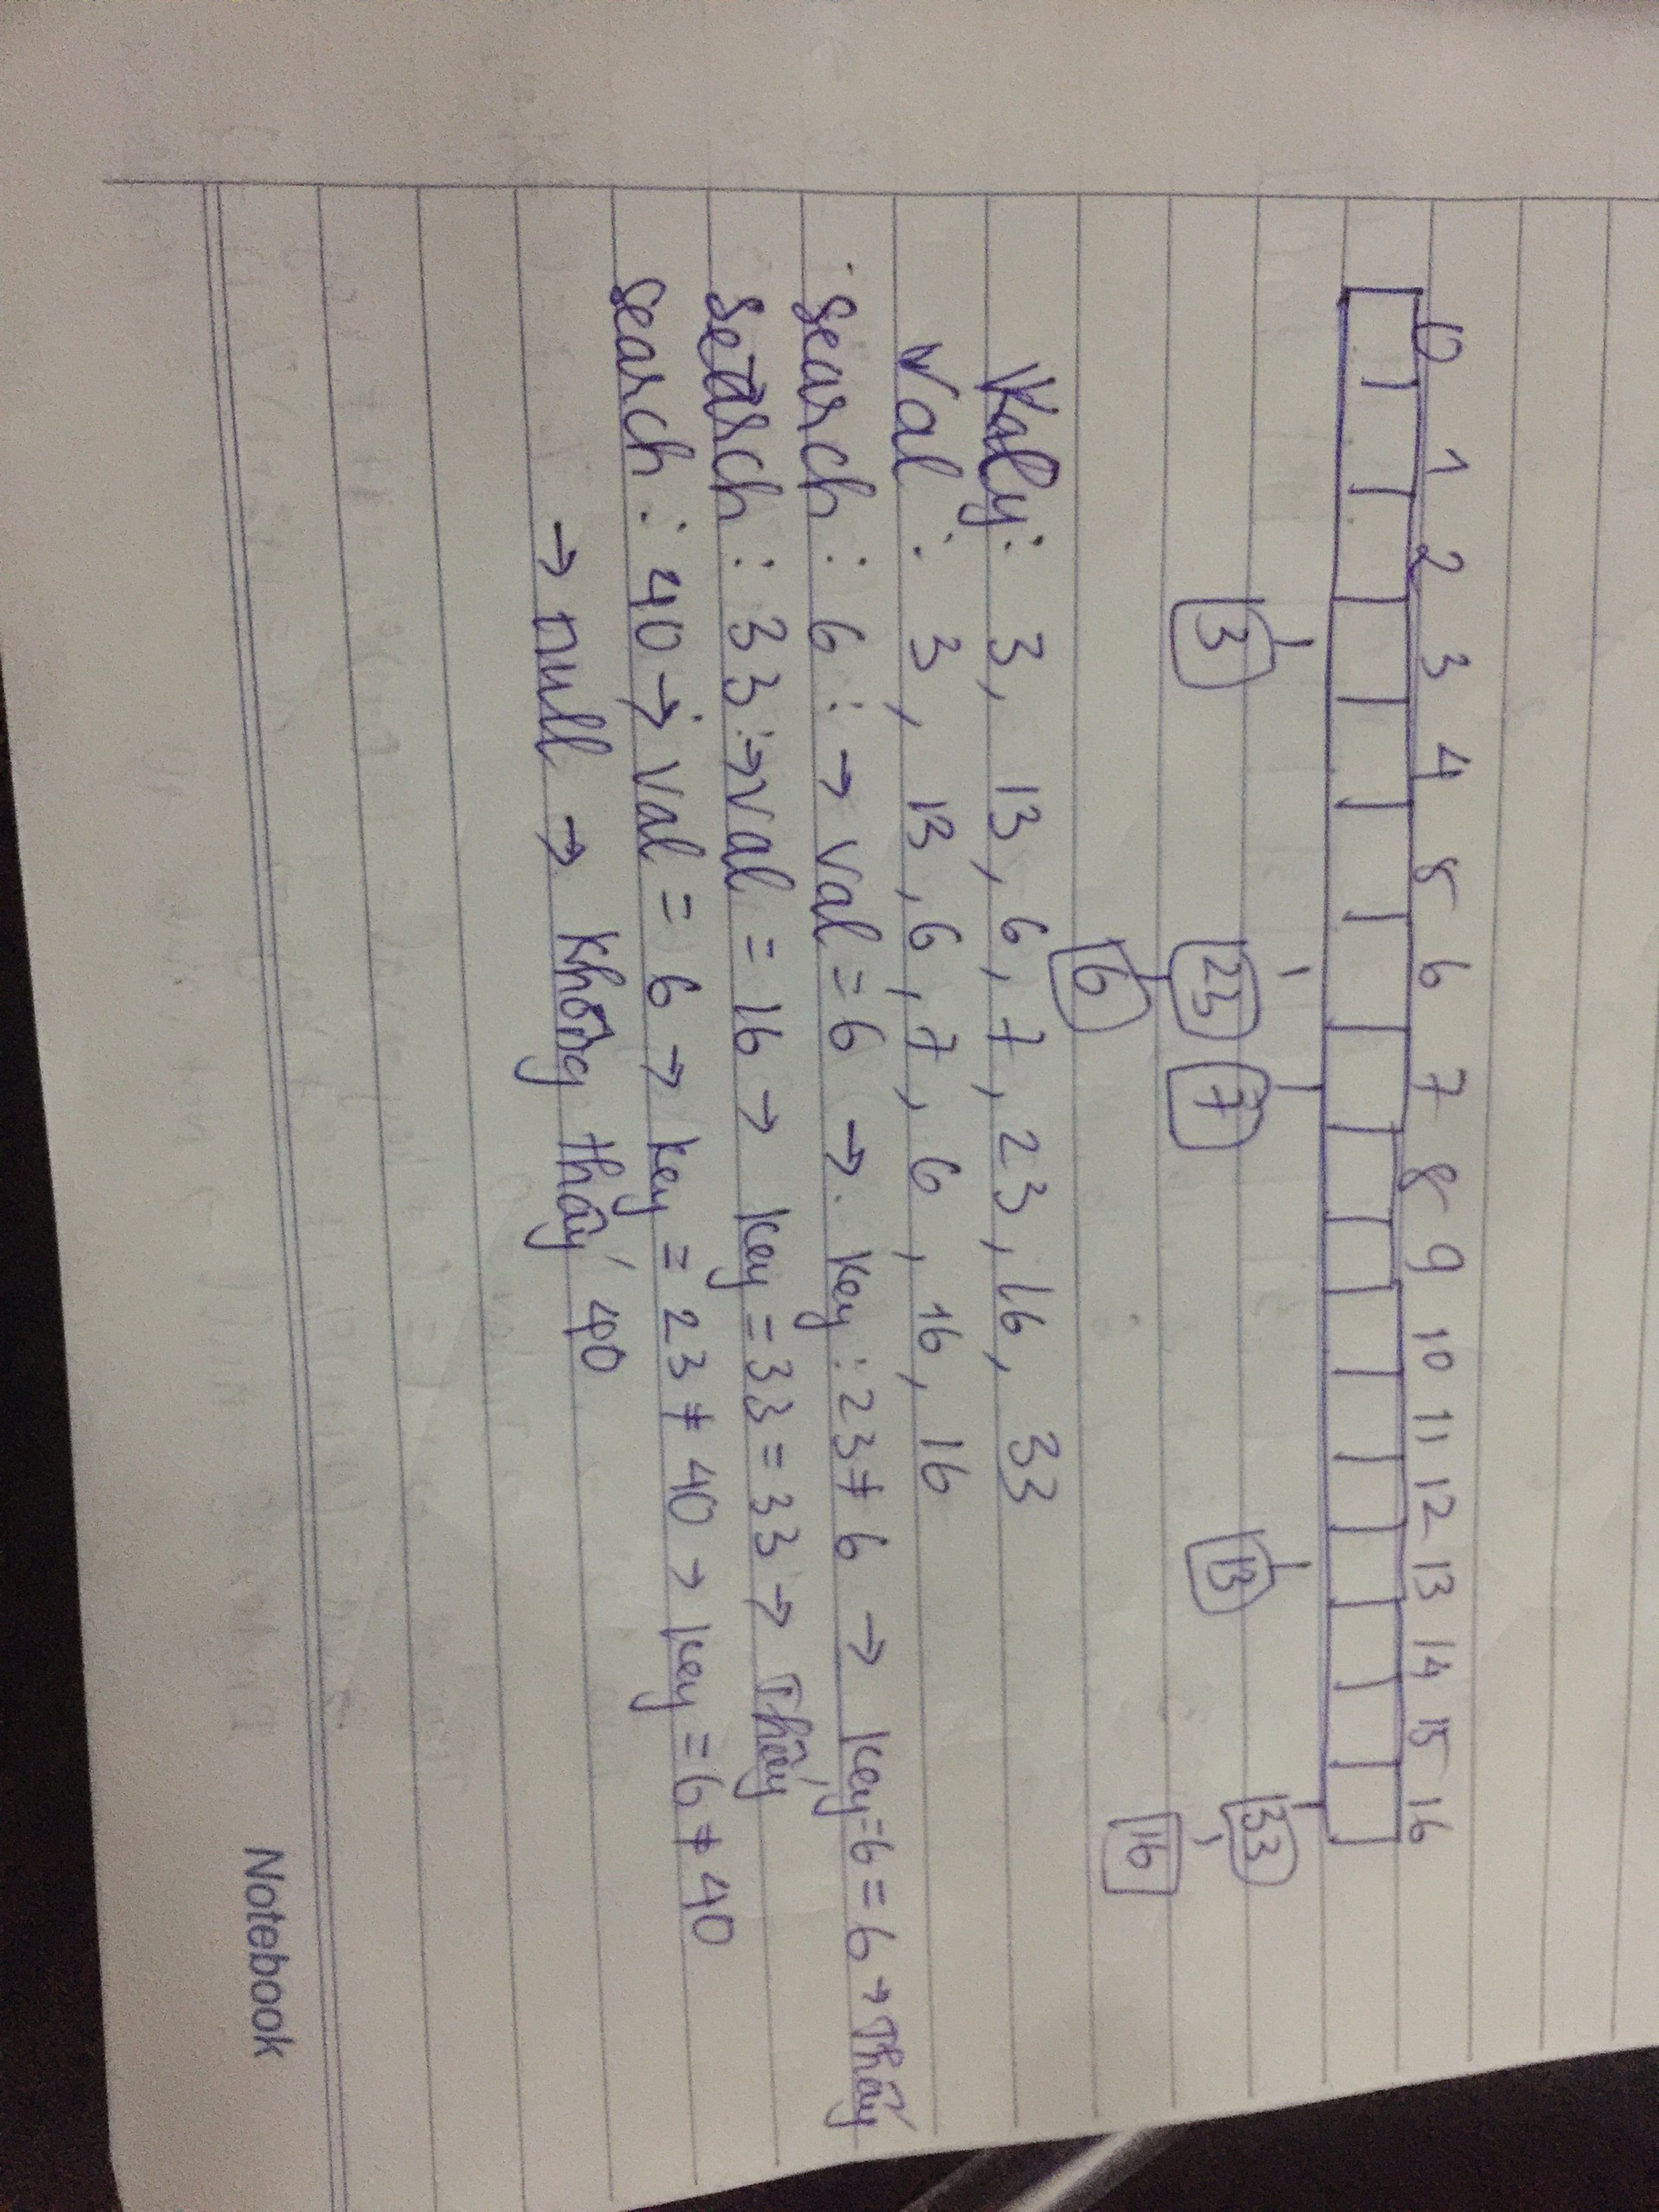 0 1 2 3 4 5 6 7 8 9 10 11 12 13 14 15 16
3 23 7 13 33
6 16
Kaly: 3, 13, 6, 7, 23, 16, 33
Val: 3, 13, 6, 7, 6, 16, 16
search: 6: → val = 6 → key: 23 ≠ 6 → key = 6 = 6 → Thấy
search: 33: → val = 16 → key = 33 = 33 → Thấy
search: 40 → val = 6 → key = 23 ≠ 40 → key = 6 ≠ 40
→ null → không thấy 40
Notebook